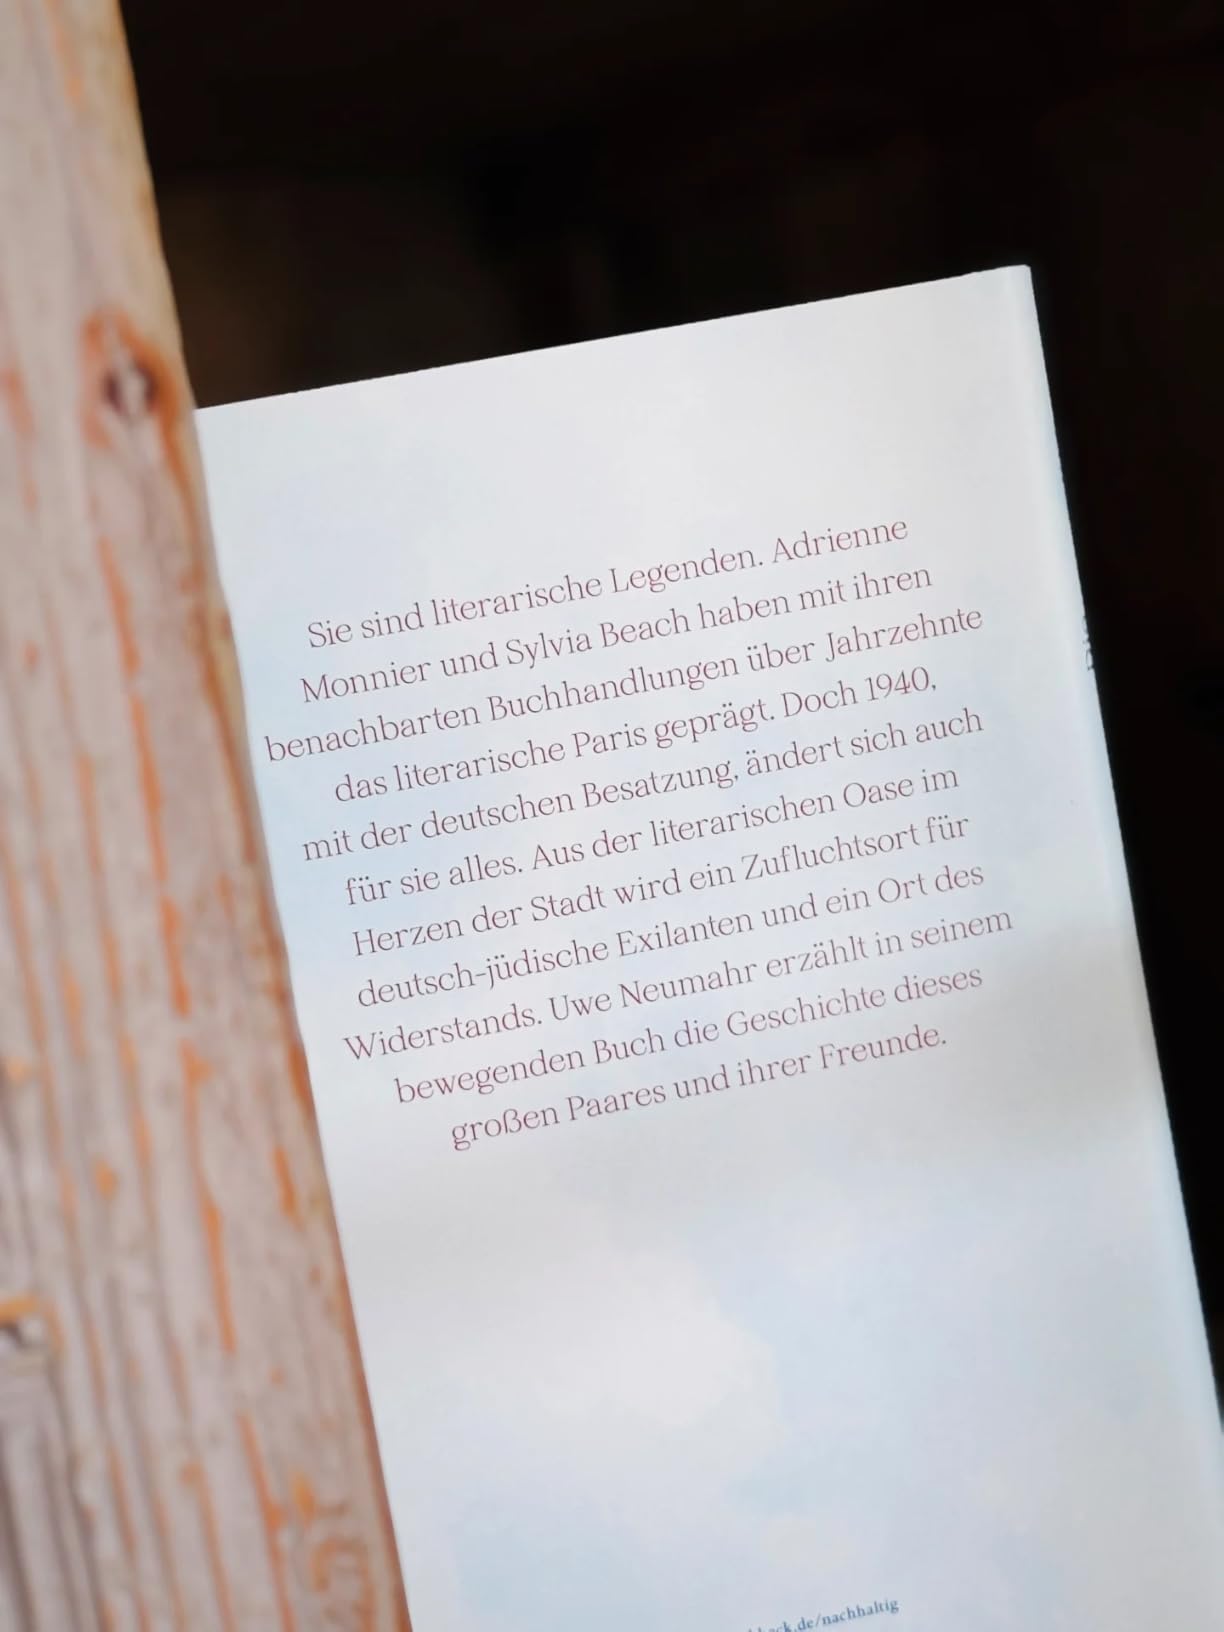 Sie sind literarische Legenden. Adrienne
Monnier und Sylvia Beach haben mit ihren
benachbarten Buchhandlungen über Jahrzehnte
das literarische Paris geprägt. Doch 1940,
mit der deutschen Besatzung, ändert sich auch
für sie alles. Aus der literarischen Oase im
Herzen der Stadt wird ein Zufluchtsort für
deutsch-jüdische Exilanten und ein Ort des
Widerstands. Uwe Neumahr erzählt in seinem
bewegenden Buch die Geschichte dieses
großen Paares und ihrer Freunde.
.de/nachhaltig